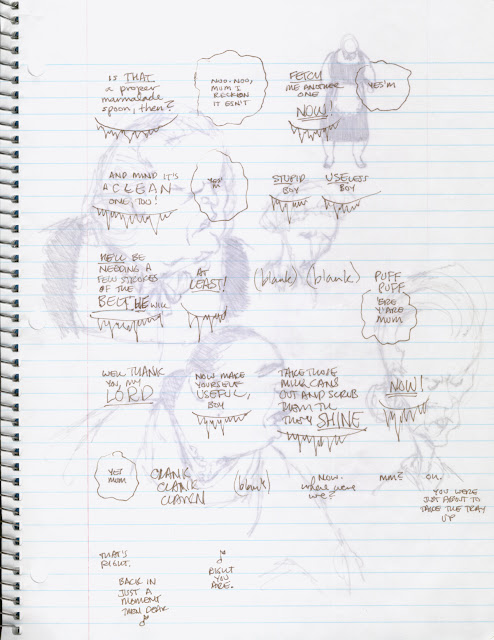 IS THAT
a proper
marmalade
spoon, then?
NOO-NOO,
MUM I
RECKON
IT ISN'T
FETCH
ME ANOTHER
ONE
NOW!
YES'M
AND MIND IT'S
A CLEAN
ONE, TOO!
YES'M
STUPID
BOY
USELESS
BOY
HE'LL BE
NEEDING A
FEW STROKES
OF THE
BELT HE WILL
AT
LEAST!
(blank)
(blank)
PUFF
PUFF
'ERE
Y'ARE
MUM
WELL THANK
YOU, MY
LORD
NOW MAKE
YOURSELF
USEFUL,
BOY
TAKE THOSE
MILK CANS
OUT AND SCRUB
THEM TIL
THEY SHINE
NOW!
YES
MUM
CRANK
CLANK
(blank)
NOW.
where were
we?
MM?
OH.
YOU WERE
JUST ABOUT TO
TAKE THE TRAY
UP
THAT'S
RIGHT.
BACK IN
JUST A
MOMENT
THEN DEAR
RIGHT
YOU
ARE.